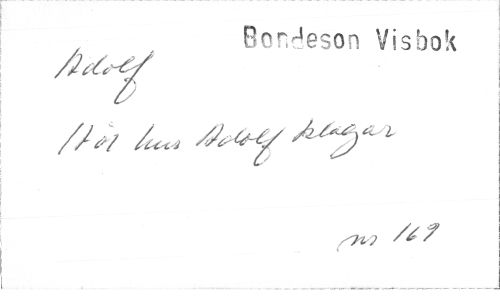 Bondeson Visbok
Adolf
Hör hur Adolf klagar
nr 169